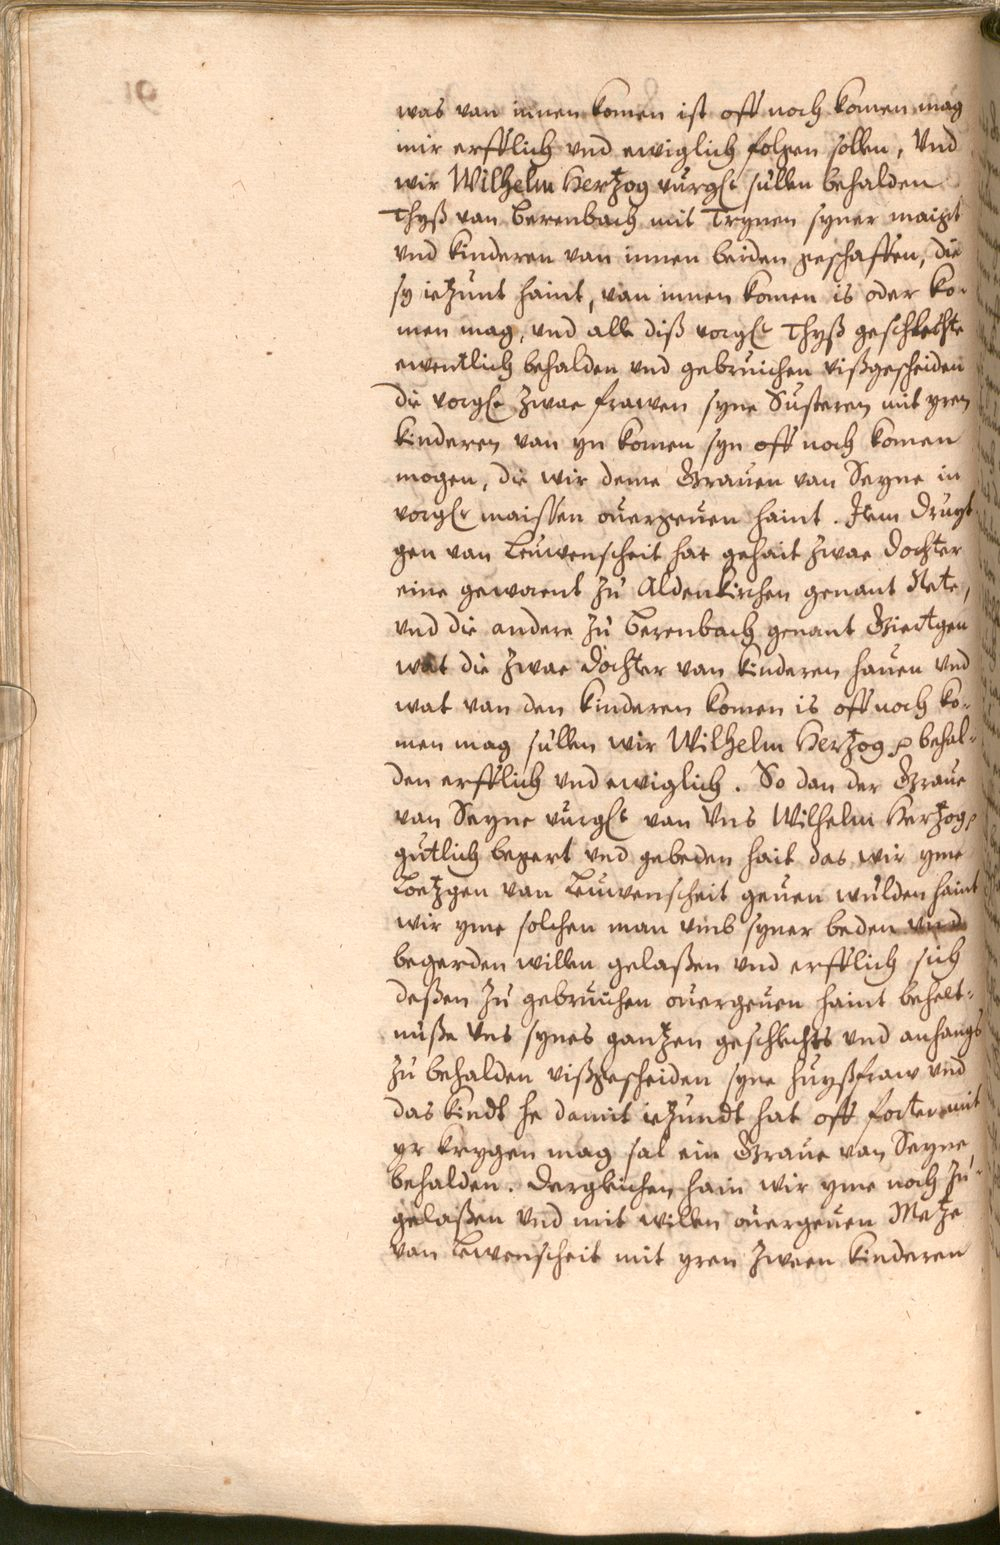 was van innen komen ist off noch komen mag
mir erfflich vnd ewiglich folgen sollen, Vnd
wir Wilhelm Hertzog vurgst sullen behalden
Thyß van Berenbach mit Trynen syner maigt
vnd kinderen van innen beiden geschaffen, die
sy ietzunt haint, van innen komen is oder ko-
men mag, vnd alle diß vorgst Thyß geschlechte
ewentlich behalden vnd gebruichen vißgescheiden
die vorgst zwae frawen syne Susteren mit yren
kinderen van yn komen syn off noch komen
mogen, die wir deme Grauen van Seyne in
vorgsr maissen ouergeuen haint. Item Druyt
gen van Leuwenscheit hat gehait zwae dochter
eine gewaent zu Aldenkirchen genant Nete,
vnd die andere zu Berenbach genant Giertgen
wat die zwae dochter van kinderen hauen vnd
wat van den kinderen komen is off noch ko-
men mag sullen wir Wilhelm Hertzog behal-
den erfflich vnd ewiglich. So dan der Graue
van Seyne vurgst van Vns Wilhelm Hertzog
gutlich begert vnd gebeden hait das wir yme
Loetzgen van Leuwenscheit geuen wulden haint
wir yme solchen man vmb syner beden vnd
begerden willen gelaßen vnd erfflich sich
deßen zu gebruichen ouergeuen haint behelt-
nuße Vns synes gantzen geschlechts vnd anhangs
zu behalden vißgescheiden syne huyßfraw vnd
das kindt he damit ietzundt hat off forter mit
yr krygen mag sal ein Graue van Seyne
behalden. Dergleichen hain wir yme noch zu-
gelaßen vnd mit willen ouergeuen Metze
van Lewenscheit mit yren zween kinderen